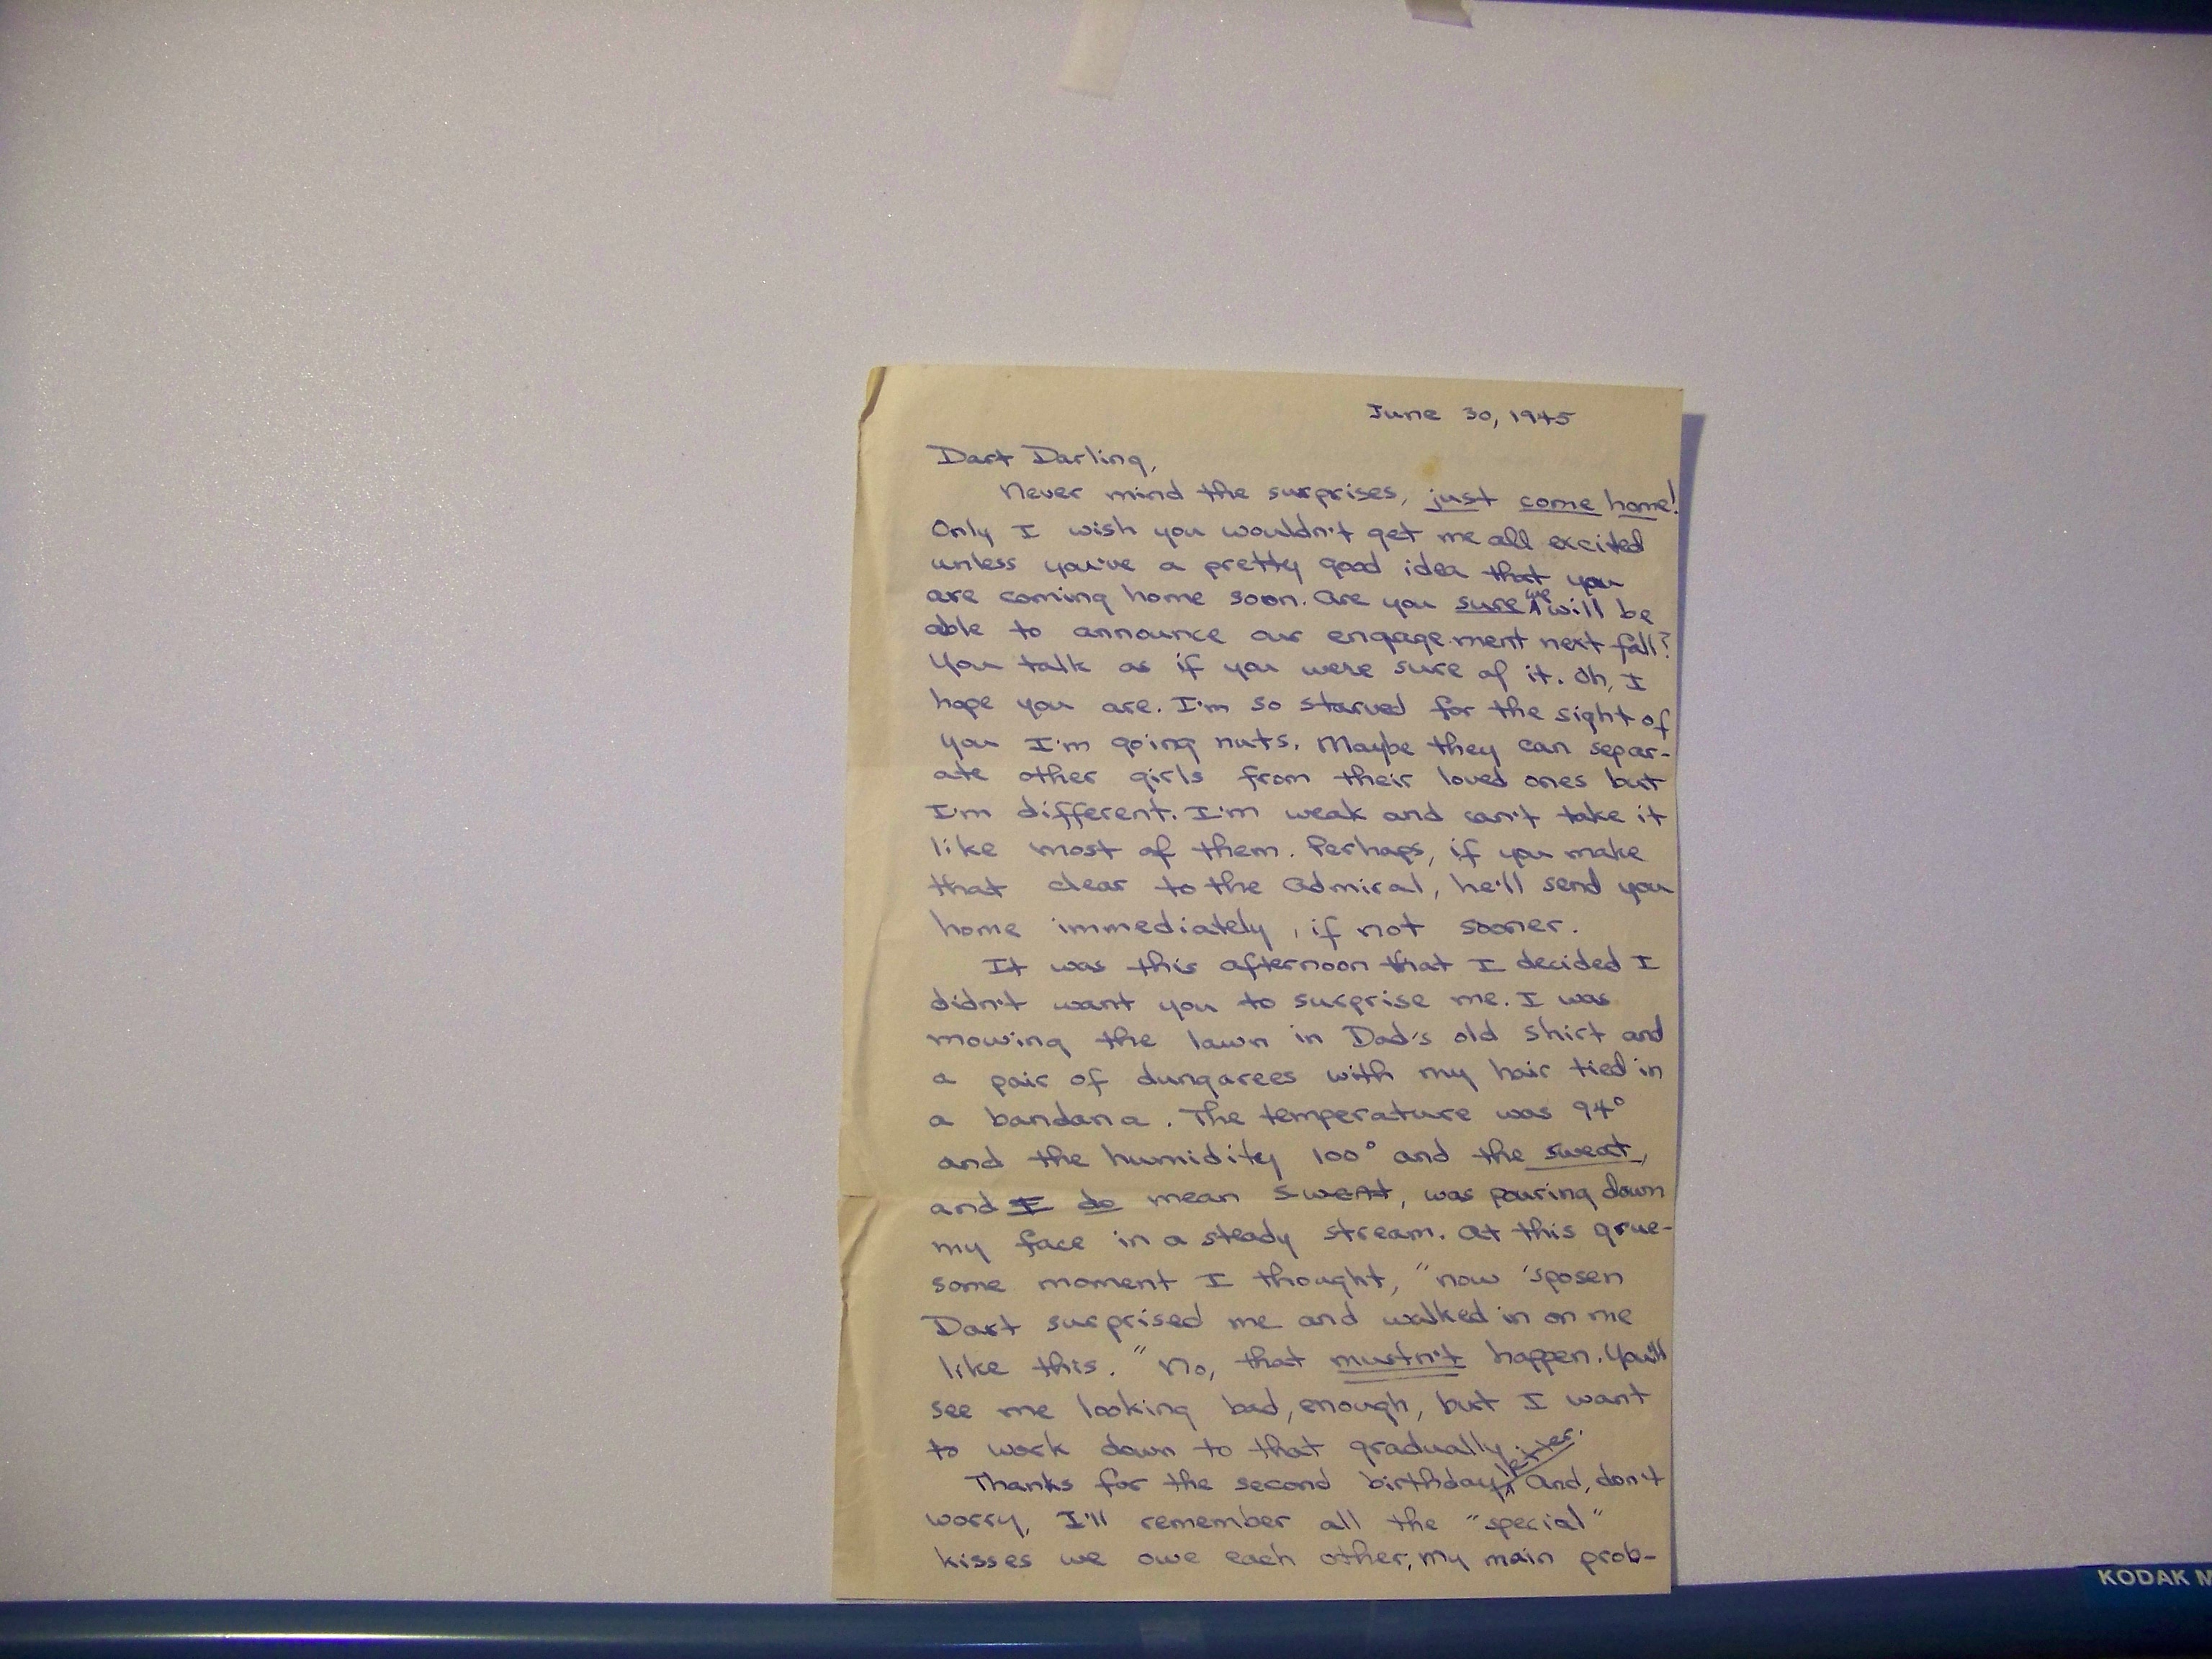 June 30, 1945
Dart Darling,
Never mind the surprises, just come home!
Only I wish you wouldn't get me all excited
unless you've a pretty good idea that you
are coming home soon. Are you sure we will be
able to announce our engagement next fall?
You talk as if you were sure of it. Oh, I
hope you are. I'm so starved for the sight of
you I'm going nuts. Maybe they can separ-
ate other girls from their loved ones but
I'm different. I'm weak and can't take it
like most of them. Perhaps, if you make
that clear to the Admiral, he'll send you
home immediately, if not sooner.
It was this afternoon that I decided I
didn't want you to surprise me. I was
mowing the lawn in Dad's old shirt and
a pair of dungarees with my hair tied in
a bandana. The temperature was 94°
and the humidity 100° and the sweat,
and I do mean SWEAT, was pouring down
my face in a steady stream. At this grue-
some moment I thought, "now 'sposen
Dart surprised me and walked in on me
like this." No, that mustn't happen. You'll
see me looking bad, enough, but I want
to work down to that gradually.
Thanks for the second birthday letter. And, don't
worry, I'll remember all the "special"
kisses we owe each other, my main prob-
KODAK M